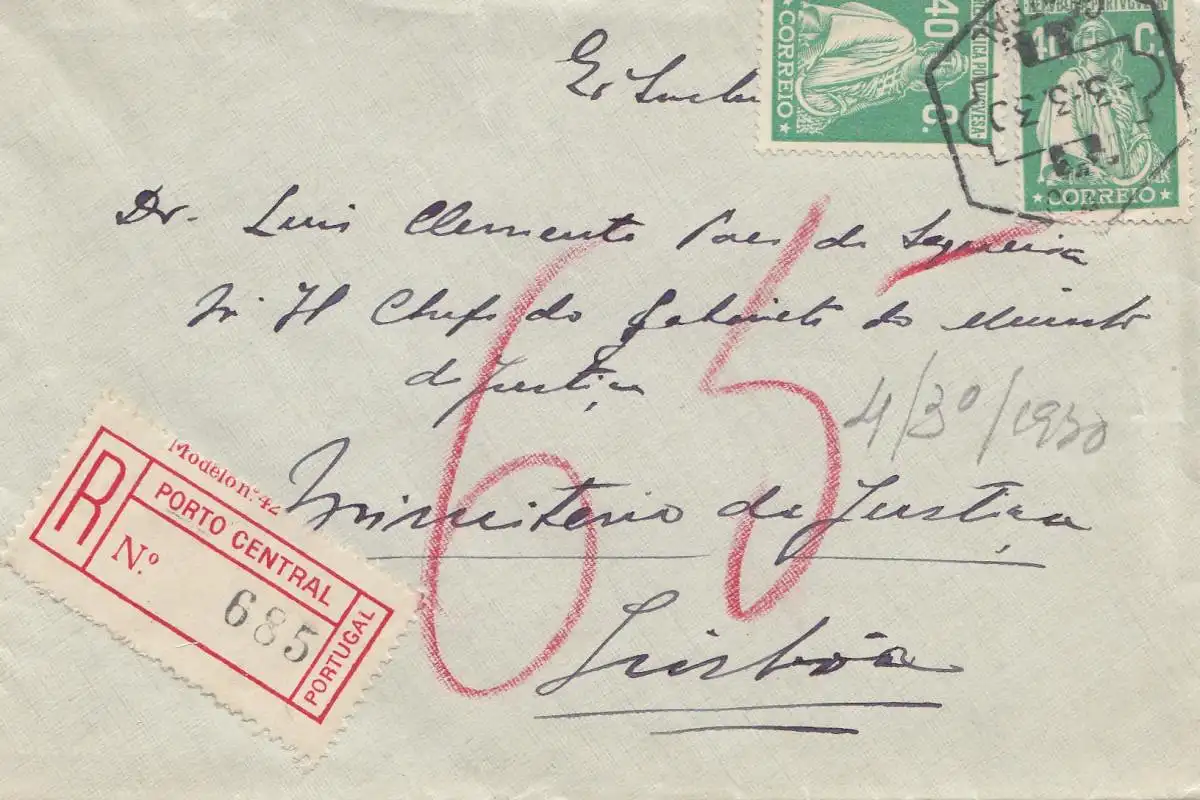 40 C.
CORREIO
40 C.
CORREIO
3.3.3
Dr. Luis Clemente Paes de Sequeira
Chefe do Gabinete do Ministro
de Justiça
65
4/3º/1930
Ministerio da Justiça
Lisbôa
Modelo n.º 42
R
PORTO CENTRAL
N.º 685
PORTUGAL